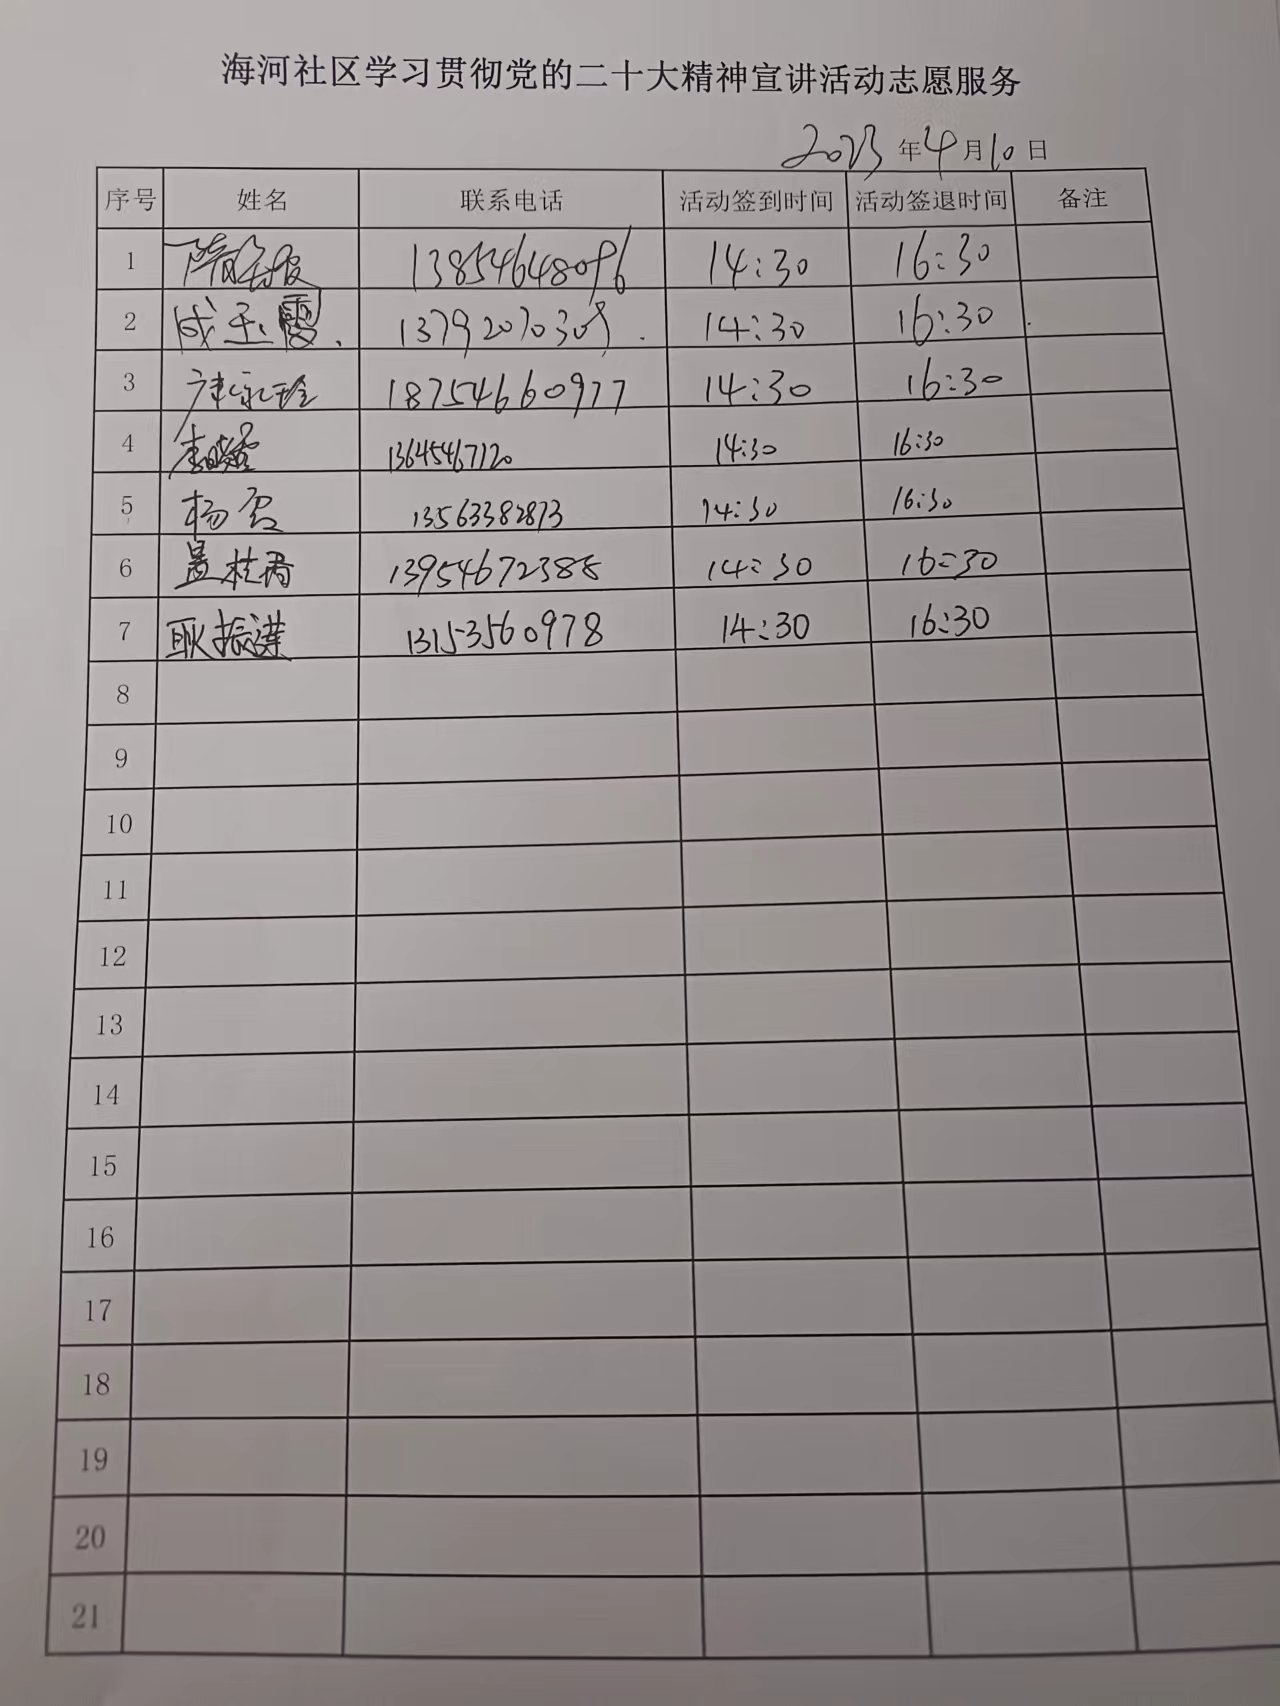 海河社区学习贯彻党的二十大精神宣讲活动志愿服务
2023年4月10日
序号 姓名 联系电话 活动签到时间 活动签退时间 备注
1 13854648096 14:30 16:30
2 成玉霞. 14:30 16:30
3 18754660977 14:30 16:30
4 13645467120 14:30 16:30
5 杨霞 13563382873 14:30 16:30
6 盖桂香 13954672388 14:30 16:30
7 耿振 13153560978 14:30 16:30
8
9
10
11
12
13
14
15
16
17
18
19
20
21